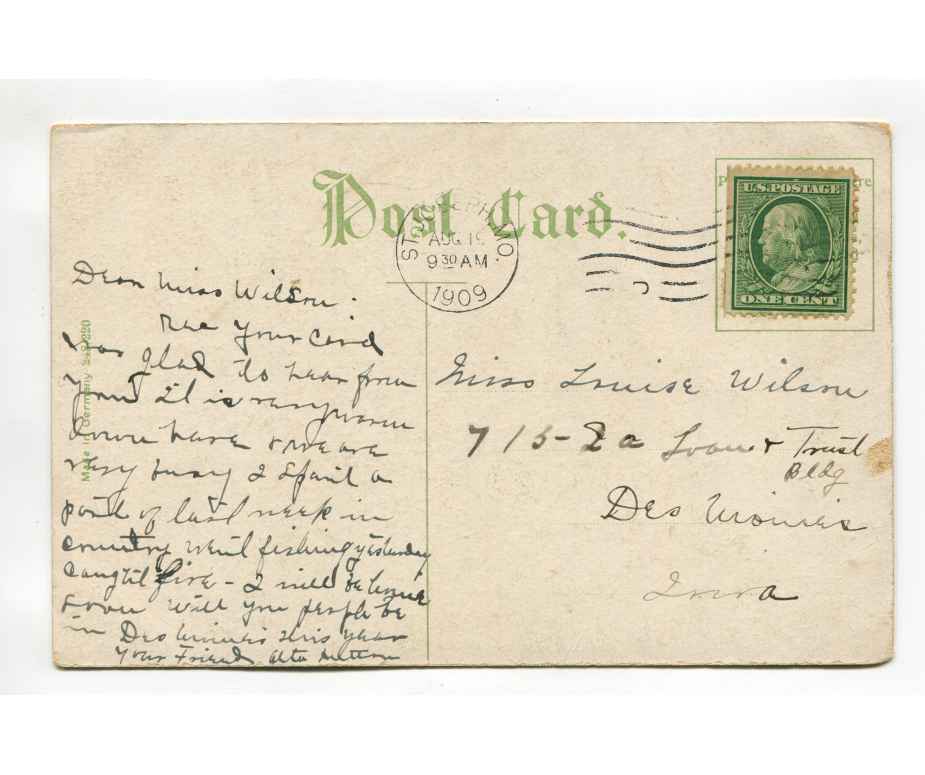 Post Card.
ST. JOSEPH, MO.
AUG 1
9 30 AM
1909
U.S. POSTAGE
ONE CENT
Made in Germany
Dear Miss Wilson.
Rec Your Card
was glad to hear from
you it is very warm
down here & we are
very busy I spent a
part of last week in
country went fishing yesterday
caught five - I will be home
soon will you people be
in Des Moines this year
Your Friend Alta
Miss Louise Wilson
715- Ia Loan & Trust
Bldg
Des Moines
Iowa